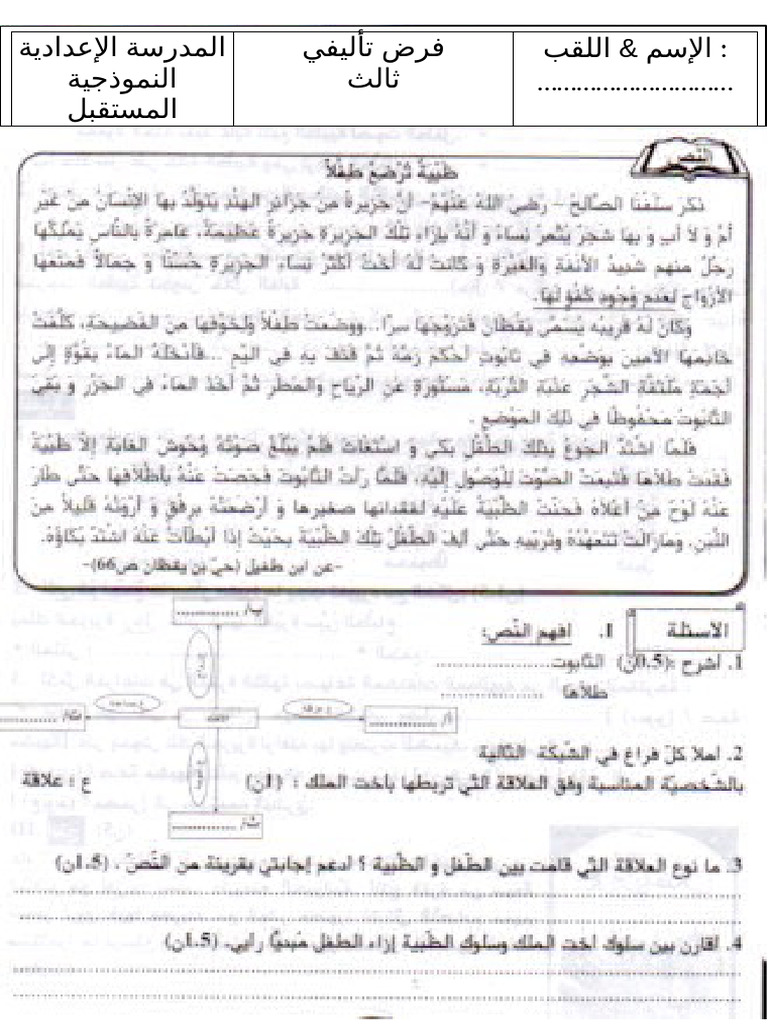 الإسم & اللقب :
..............................
فرض تأليفي
ثالث
المدرسة الإعدادية
النموذجية
المستقبل
النّص
ظَبْيَةٌ تُرْضِعُ طِفْلاً
ذكر سلفنا الصّالح – رضي الله عنهم– أنّ جزيرة من جزائر الهند يتولّد بها الإنسان من غير
أمّ و لا أب و بها شجر يثمر نساء و أنّه بإزاء تلك الجزيرة جزيرة عظيمة، عامرة بالنّاس يملكها
رجل منهم شديد الأنفة والغيرة و كانت له أخت أكثر نساء الجزيرة حسنا و جمالا فمنعها
الأزواج لعدم وجود كفؤ لها.
وكان له قريبه يسمّى يقظان فتزوجها سرّا...ووضعت طفلاً ولخوفها من الفضيحة، كلّفت
خادمها الأمين بوضعه في تابوت أحكم زمّه ثمّ قذف به في اليمّ ...فأدخله الماء بقوّة إلى
أجمة ملتفّة الشّجر عذبة التّربة، مستورة عن الرّياح والمطر ثمّ أخذ الماء في الجزر و بقي
التّابوت محفوظا في ذلك الموضع .
فلمّا اشتدّ الجوع بذلك الطّفل بكى و استغاث فلم يبلغ صوته وحوش الغابة إلاّ ظبية
فقدت طلاها فتبعت الصّوت للوصول إليه، فلمّا رأت التّابوت فحصت عنه بأظلافها حتّى طار
عنه لوح من أعلاه فحنّت الظّبية عليه لفقدانها صغيرها و أرضعته برفق و أروته قليلا من
اللّبن. ومازالت تتعهّده وتربيه حتّى ألف الطّفل تلك الظّبية بحيث إذا أبطأت عنه اشتدّ بكاؤه.
-عن ابن طفيل (حيّ بن يقظان ص66)-
الأسئلة
I. افهم النّص:
1. أشرح :(0.5ن) التّابوت....................
طلاها ....................
2. أملأ كلّ فراغ في الشّبكة التّالية
بالشّخصيّة المناسبة وفق العلاقة التي تربطها بأخت الملك : (1ن)
ع : علاقة
أ/ ..............
ب/ ..............
ت/ ..............
ث/ ..............
3. ما نوع العلاقة التي قامت بين الطّفل و الظّبية ؟ ادعم إجابتي بقرينة من النّصّ . (1.5ن)
4. أقارن بين سلوك أخت الملك وسلوك الظّبية إزاء الطفل مبديّا رأيي. (1.5ن)